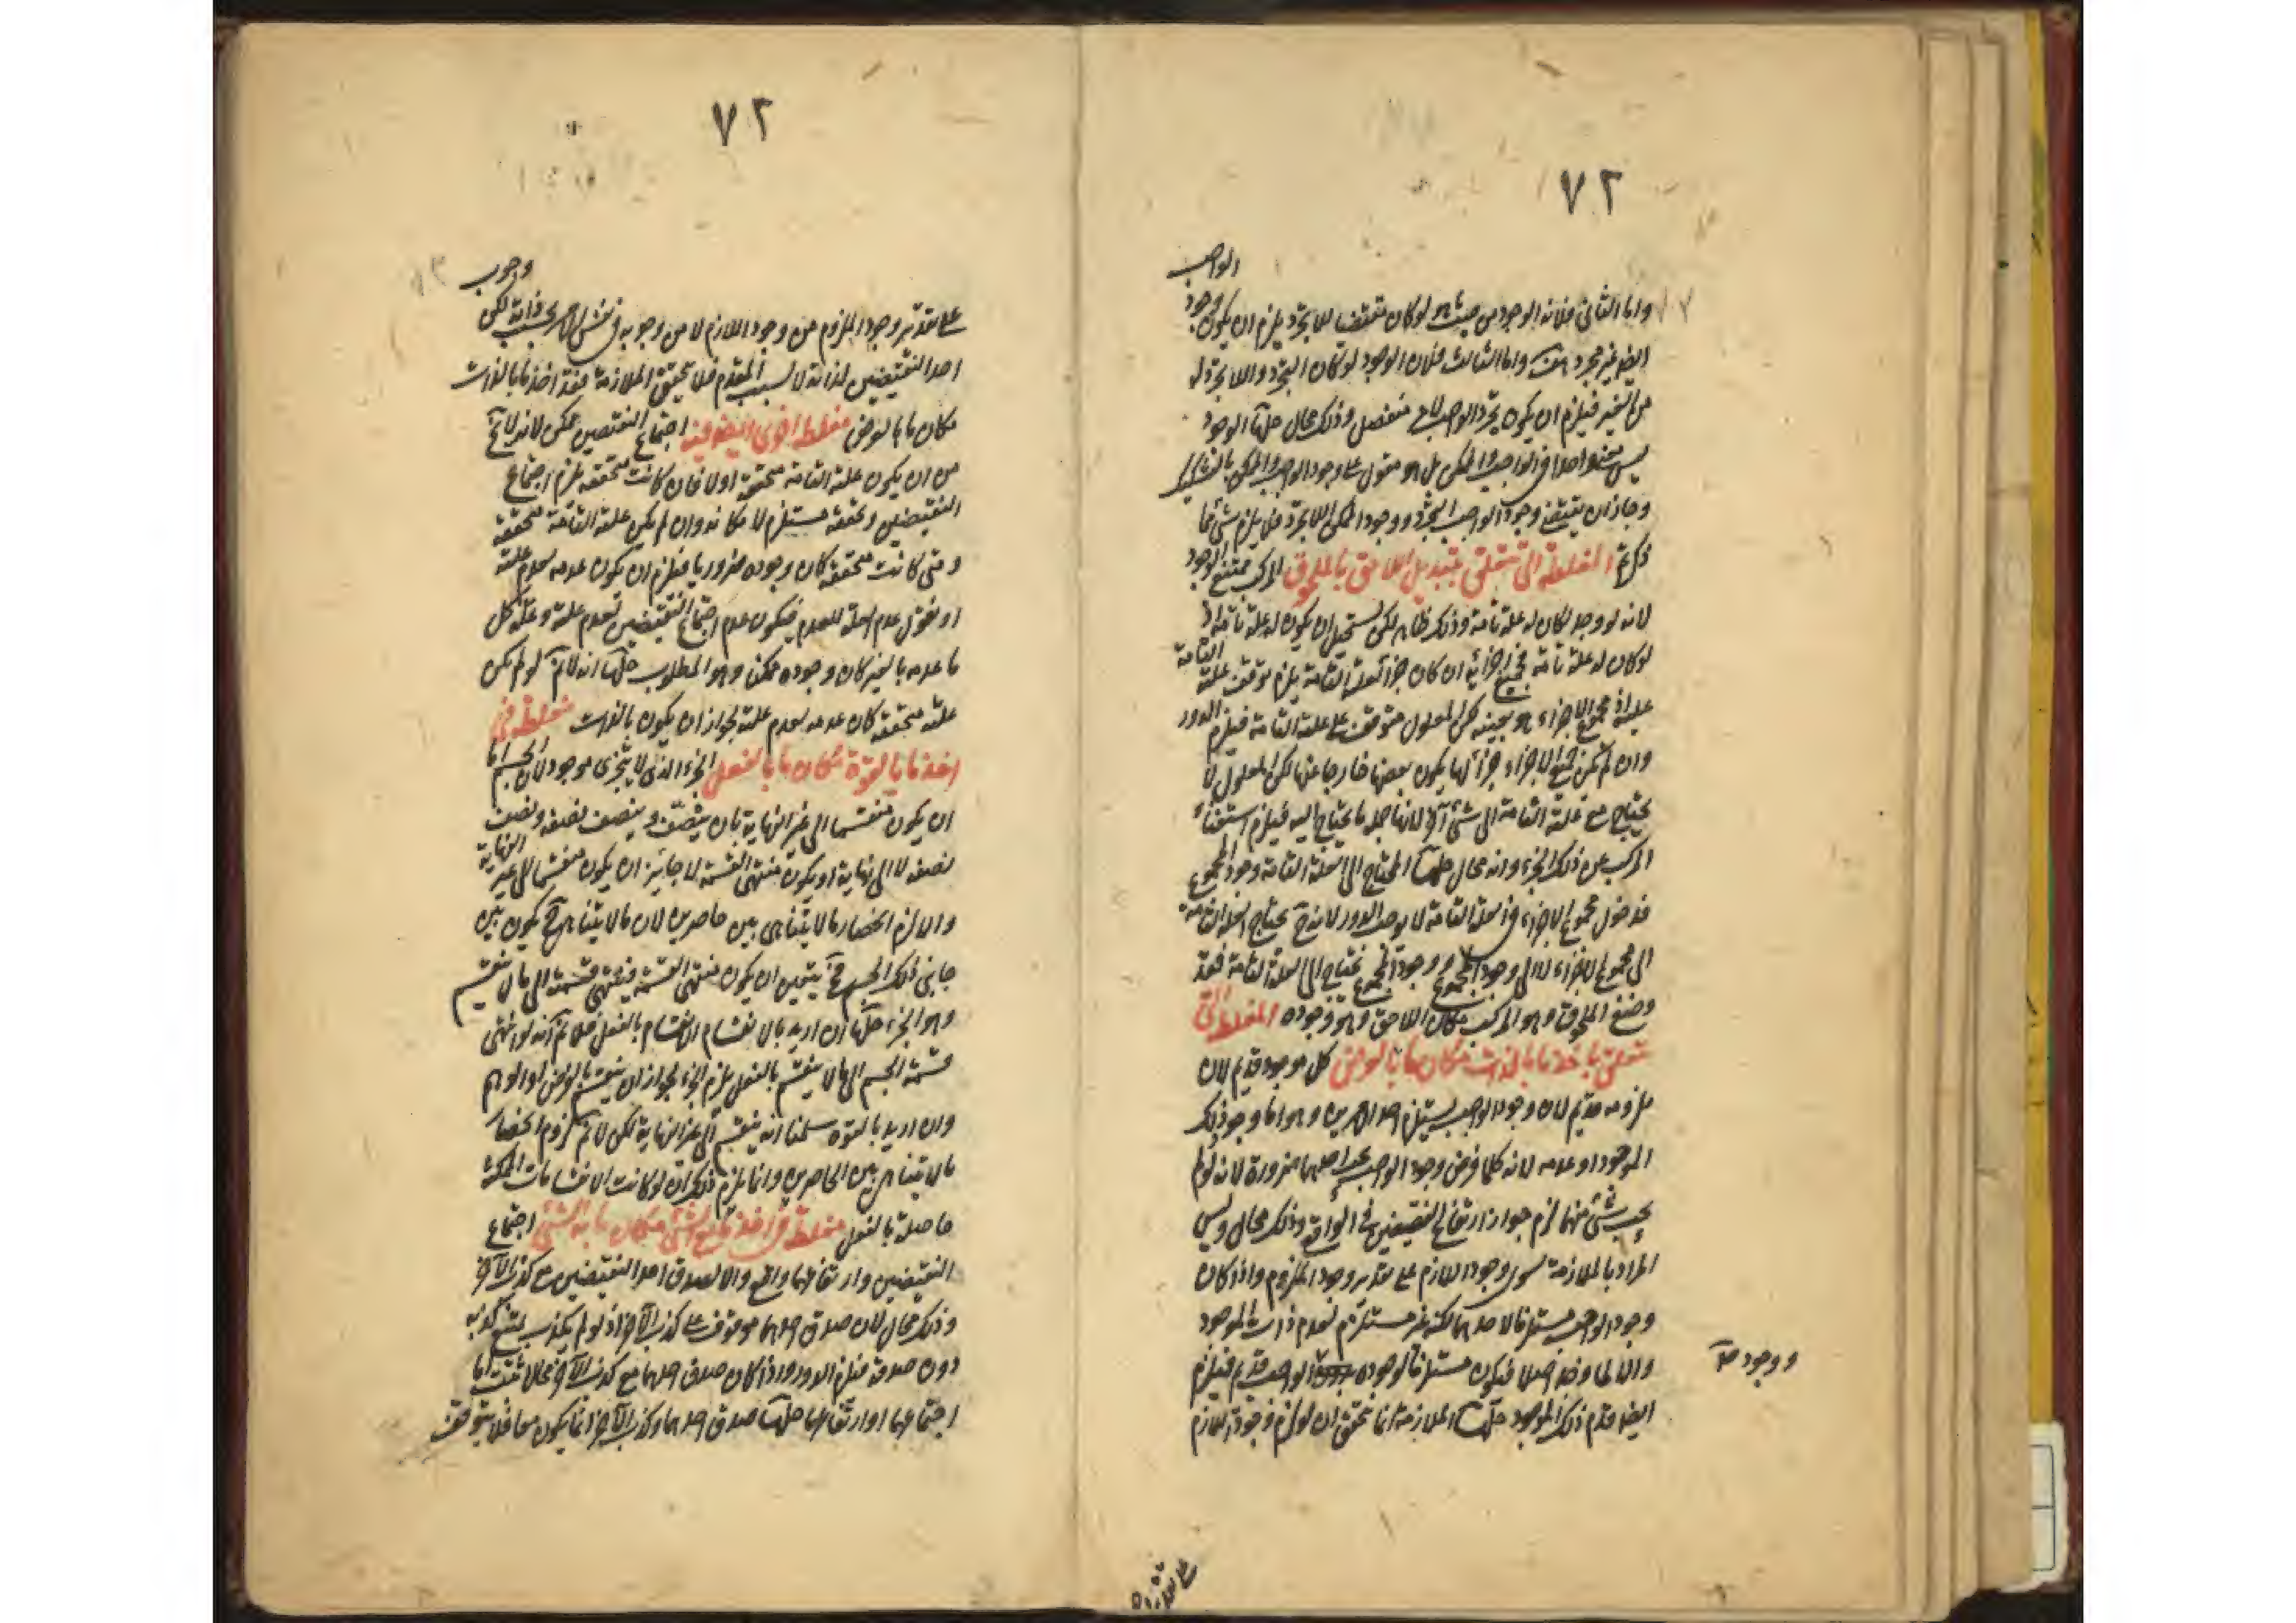 ٧٢
الواجب
واما الثانى فلانه الوجود من حيث هو لو كان مقتضيا للاتجرد يلزم ان يكون وجود
ايضا غير مجرد هف واما الثالث فلان الوجود لو كان التجرد واللاتجرد له
من الغير فيلزم ان يكون تجرد الواجب لامر منفصل وذلك محال حلها الوجود
ليس معنى واحدا فى الواجب والممكن بل هو مقول على وجود الواجب والممكن بالتشكيك
وجاز ان يقتضى وجود الواجب التجرد ووجود الممكن اللاتجرد فلا يلزم شئ مما
ذكرتم المغلطة التى تتعلق بتبديل اللاحق بالملحوق المركب ممتنع الوجود
لانه لو وجد لكان له علة تامة وذلك ظاهر لكن يستحيل ان يكون له علة تامة اذ
لو كان له علة تامة فجميع اجزائه ان كان جزأ لعلته التامة يلزم توقف علته التامة
عليه اذ مجموع الاجزاء هو بعينه لكن المعلول متوقف على علته التامة فيلزم الدور
وان لم يكن جميع الاجزاء جزأ لها يكون بعضها خارجا عنها لكن المعلول لا
يحتاج مع علته التامة الى شئ آخر لانها جملة ما يحتاج اليه فيلزم استغناء
المركب عن ذلك الجزء وانه محال حلها المحتاج الى العلة التامة وجود المجموع
فدخول مجموع الاجزاء فى العلة التامة لا يوجب الدور لانه ح يحتاج العلة التامة
الى مجموع الاجزاء لا الى وجود المجموع ووجود المجموع يحتاج الى العلة التامة فقد
وضع الملحوق وهو المركب مكان اللاحق وهو وجوده المغلطة التى
تتعلق باخذ ما بالذات مكان ما بالعرض كل موجود قديم لان
ملزومه قديم لان وجود الواجب يستلزم احد الامرين وهو اما وجود ذلك
الموجود او عدمه لانه كلما فرض وجود الواجب يجب احدهما ضرورة لانه لو لم
يجب شئ منهما لزم جواز ارتفاع النقيضين فى الواقع وذلك محال وليس
المراد بالملازمة سوى وجود اللازم على تقدير وجود الملزوم واذا كان
وجود الواجب مستلزما لاحدهما لكنه غير مستلزم لعدم ذات الموجود
والا لما وجد اصلا فيكون مستلزما لوجوده ووجود الواجب قديم فيلزم
ايضا قدم ذلك الموجود حلها الملازمة انما تتحقق ان لو لزم وجود اللازم
ووجود صح
٧٢
وجوب
على تقدير وجود الملزوم من وجود اللازم لا من وجوبه فى نفس الامر بحسب ذاته لكن
احد النقيضين لذاته لا بسبب المقدم فلا تحقق الملازمة فقد اخذ ما بالذات
مكان ما بالعرض مغلطة اخرى ايضا فيه اجتماع النقيضين ممكن لانه لا يخ
من ان يكون علته التامة متحققة اولا فان كانت متحققة يلزم اجتماع
النقيضين وتحققه مستلزم لامكانه وان لم يكن علته التامة متحققة
ومتى كانت متحققة كان وجوده ضروريا فيلزم ان يكون عدمه لعدم علته
او نقول عدم العلة للعدم فيكون عدم اجتماع النقيضين لعدم علته وعلة كل
ما عدمه بالغير كان وجوده ممكنا وهو المطلوب حلها انه لا نم لو لم يكن
علته متحققة كان عدمه لعدم علته لجواز ان يكون بالذات مغلطة فى
اخذ ما بالقوة مكان ما بالفعل الجزء الذى لا يتجزى موجود لان الجسم اما
ان يكون منقسما الى غير النهاية بان ينتصف وينصف نصفه ونصف
نصفه لا الى نهاية او يكون منتهى القسمة لا جائز ان يكون منقسما الى غير النهاية
والا لزم انحصار ما لا يتناهى بين حاصرين لان ما لا يتناهى ح يكون بين
جانبى ذلك الجسم فح يتعين ان يكون منتهى القسمة فينتهى قسمته الى ما لا ينقسم
وهو الجزء حلها ان اريد بالانقسام الانقسام بالفعل فلا نم انه لو انتهى
قسمة الجسم الى ما لا ينقسم بالفعل يلزم الجزء لجواز ان ينقسم بالفرض او الوهم
وان اريد بالقوة سلمنا انه ينقسم الى غير النهاية لكن لا نم لزوم انحصار
ما لا يتناهى بين الحاصرين وانما يلزم ذلك ان لو كانت الانقسامات الممكنة
حاصلة بالفعل مغلطة فى اخذ ما مع الشئ مكان ما به الشئ اجتماع
النقيضين وارتفاعهما واقع والا لصدق احد النقيضين مع كذب الآخر
وذلك محال لان صدق احدهما موقوف على كذب الآخر اذ لو لم يكذب يمتنع كذبه
دون صدقه فيلزم الدور واذا كان صدق احدهما مع كذب الآخر محالا ثبت اما
اجتماعهما او ارتفاعهما حلها صدق احدهما وكذب الآخر انما يكون معا فلا يتوقف